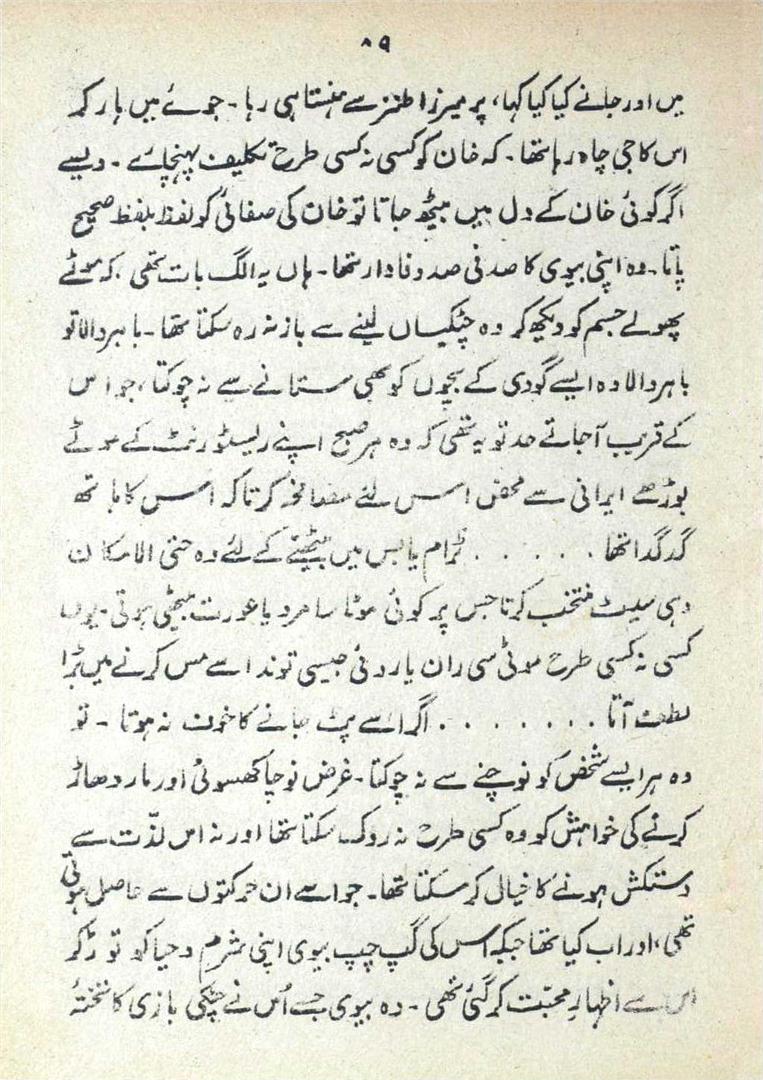 ۸۹
میں اور جانے کیا کیا کہا، پر میرزا طنز سے ہنستا ہی رہا۔ جوئے میں ہار کر
اس کا جی چاہ رہا تھا۔ کہ خان کو کسی نہ کسی طرح تکلیف پہنچائے۔ ویسے
اگر کوئی خان کے دل میں بیٹھ جاتا تو خان کی صفائی کو لفظ بلفظ صحیح
پاتا۔ وہ اپنی بیوی کا صد فی صد وفادار تھا۔ ہاں یہ الگ بات تھی، کہ موٹے
پھولے جسم کو دیکھ کر وہ چٹکیاں لینے سے باز نہ رہ سکتا تھا۔ باہر والا تو
باہر والا وہ ایسے گودی کے بچوں کو بھی ستانے سے نہ چوکتا، جو اس
کے قریب آجاتے حد تو یہ تھی کہ وہ ہر صبح اپنے ریسٹورنٹ کے موٹے
بوڑھے ایرانی سے محض اس لئے مصافحہ کرتا کہ اس کا ہاتھ
گدگدا تھا . . . . . . ٹرام یا بس میں بیٹھنے کے لئے وہ حتی الامکان
وہی سیٹ منتخب کرتا جس پر کوئی موٹا سا مرد یا عورت بیٹھی ہوتی۔ یوں
کسی نہ کسی طرح موٹی سی ران یا روئی جیسی توند اسے مس کرنے میں بڑا
لطف آتا . . . . . . . اگر اسے پٹ جانے کا خوف نہ ہوتا ۔ تو
وہ ہر ایسے شخص کو نوچنے سے نہ چوکتا۔ غرض نوچا کھسوٹی اور مار دھاڑ
کرنے کی خواہش کو وہ کسی طرح نہ روک سکتا تھا اور نہ اس لذّت سے
دستکش ہونے کا خیال کر سکتا تھا۔ جو اسے ان حرکتوں سے حاصل ہوتی
تھی، اور اب کیا تھا جبکہ اس کی گپ چپ بیوی اپنی شرم و حیا کو توڑ کر
اس سے اظہارِ محبّت کر گئی تھی ۔ وہ بیوی جسے اُس نے چٹکی بازی کا تختۂ